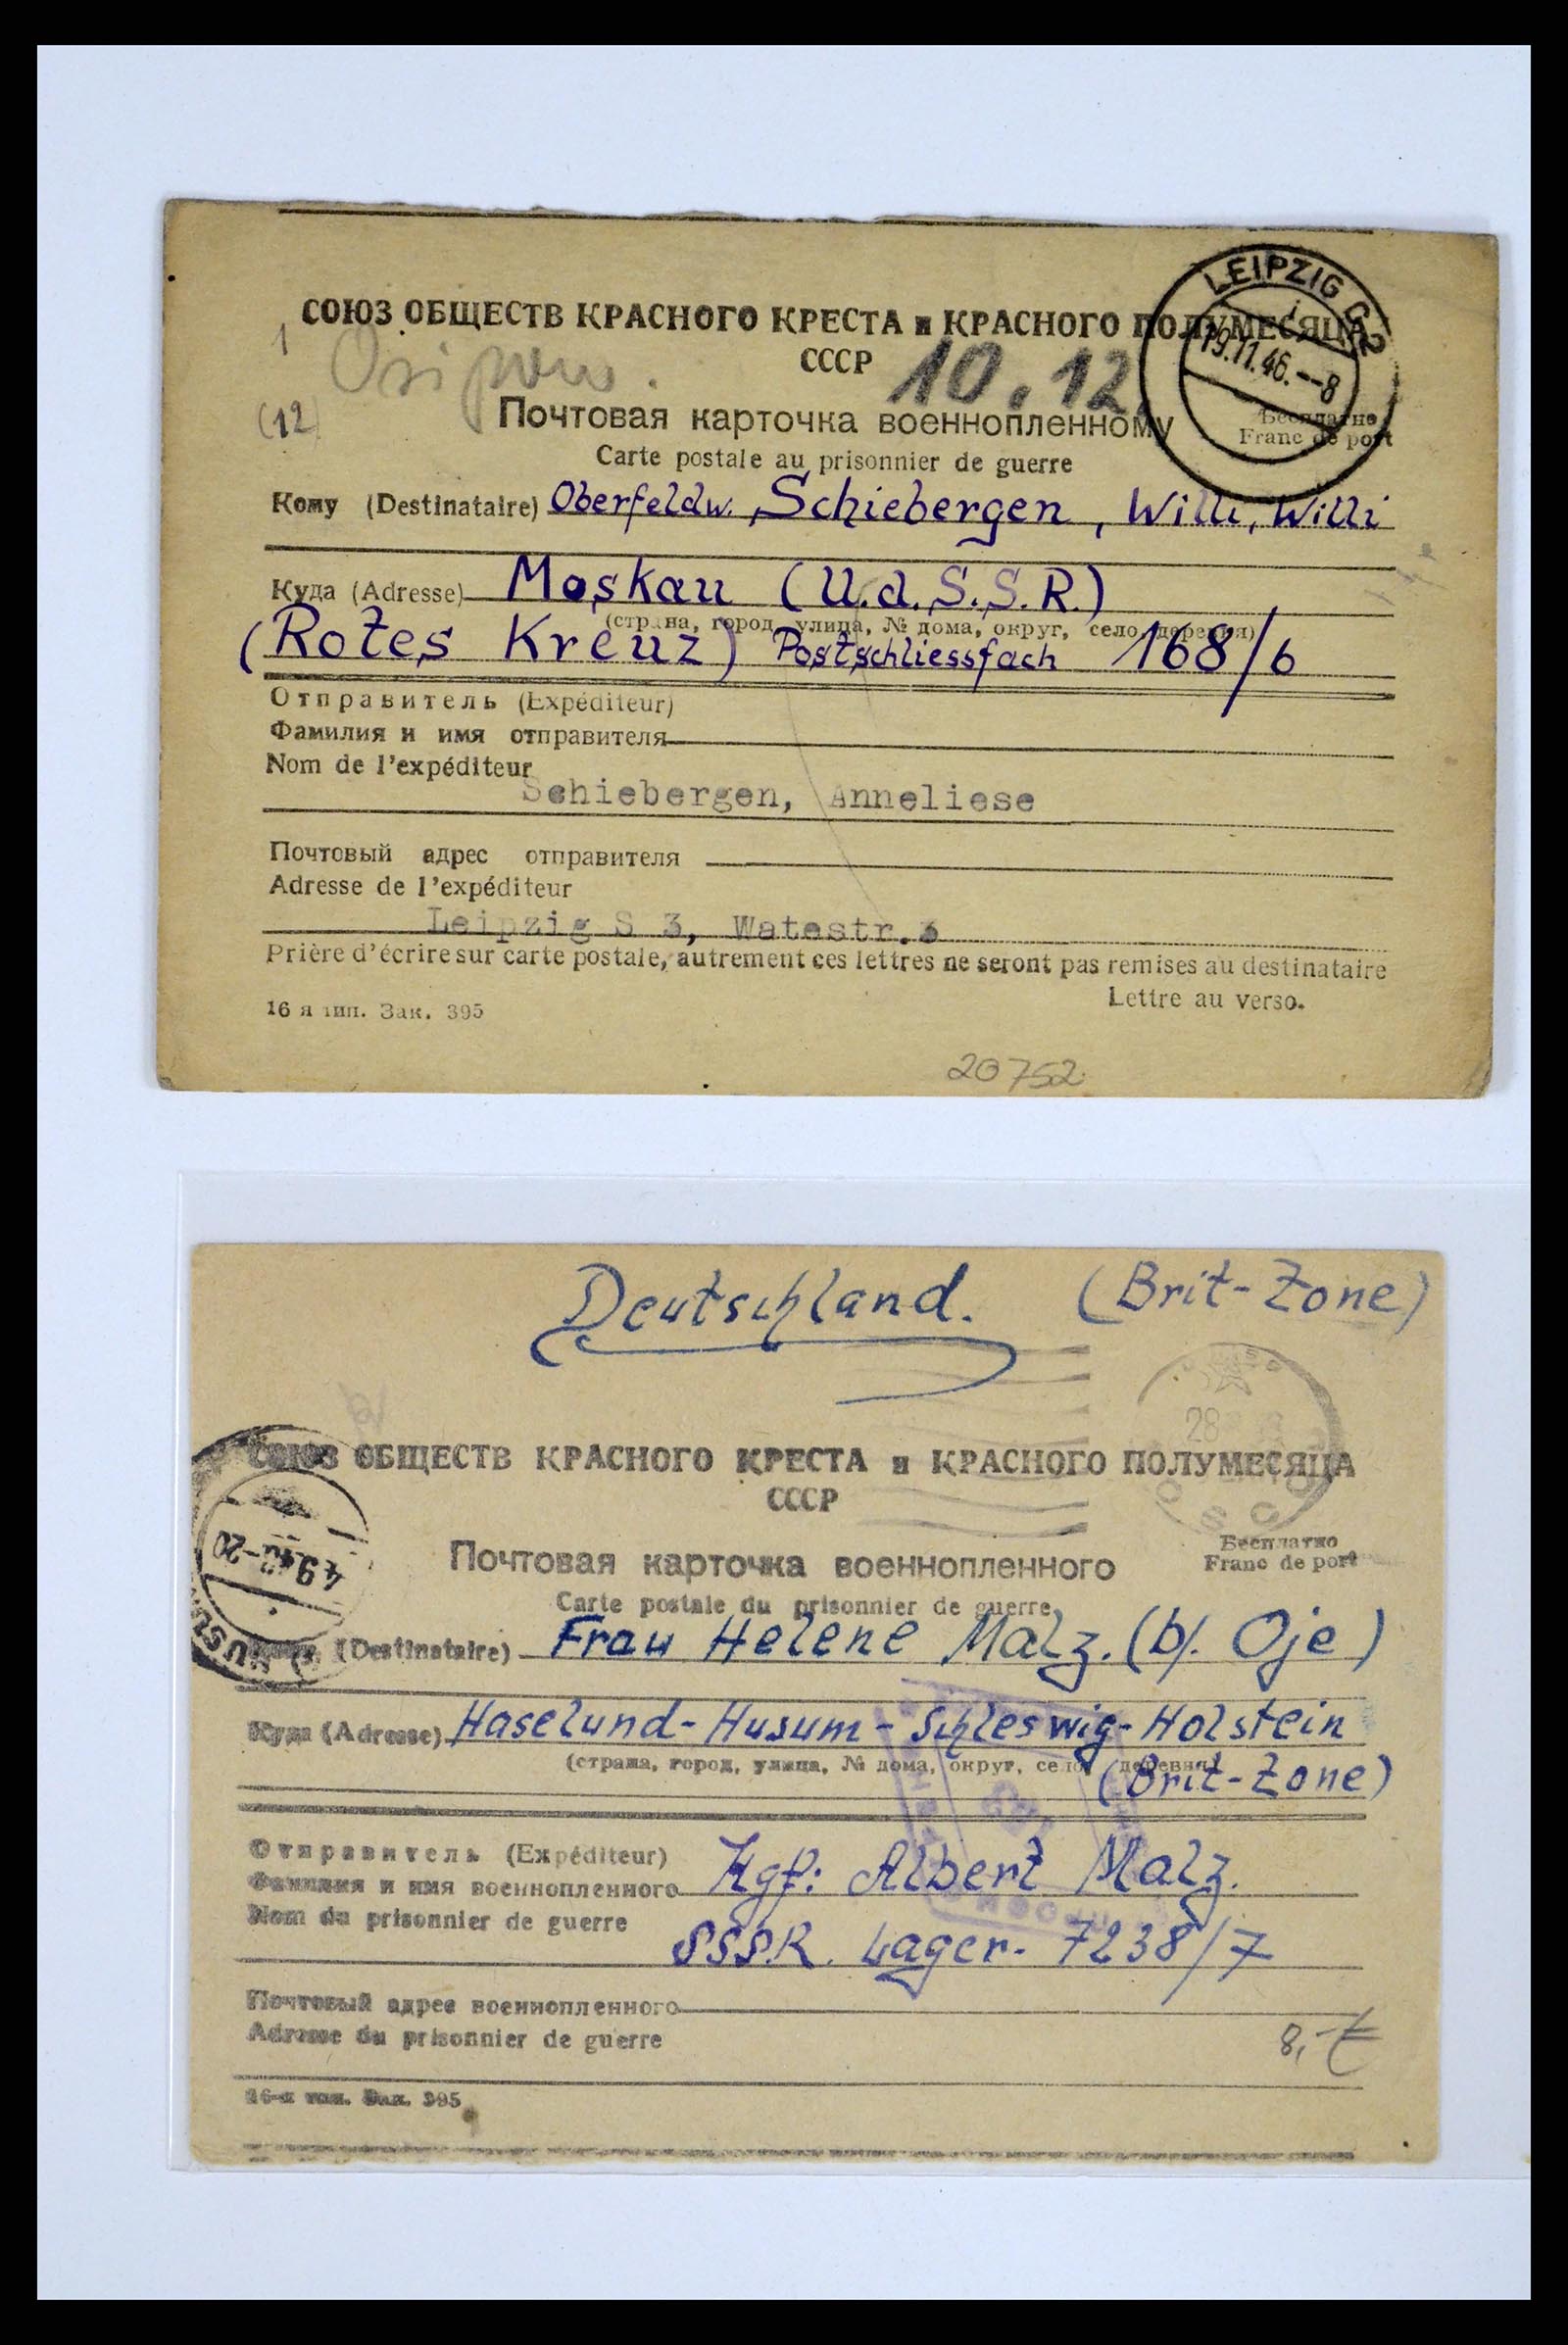 СОЮЗ ОБЩЕСТВ КРАСНОГО КРЕСТА и КРАСНОГО ПОЛУМЕСЯЦА
СССР
10.12.
LEIPZIG C2
19.11.46.--8
1
(12)
Почтовая карточка военнопленному
Бесплатно
Franc de port
Carte postale au prisonnier de guerre
Кому (Destinataire) Oberfeldw. Schiebergen, Willi, Willi
Куда (Adresse) Moskau (U.d.S.S.R.)
(страна, город, улица, № дома, округ, село, деревня)
(Rotes Kreuz) Postschliessfach 168/6
Отправитель (Expéditeur)
Фамилия и имя отправителя
Nom de l'expéditeur
Schiebergen, Anneliese
Почтовый адрес отправителя
Adresse de l'expéditeur
Leipzig S 3,
Prière d'écrire sur carte postale, autrement ces lettres ne seront pas remises au destinataire
Lettre au verso.
16 я тип. Зак. 395
20752
Deutschland. (Brit-Zone)
28
СОЮЗ ОБЩЕСТВ КРАСНОГО КРЕСТА и КРАСНОГО ПОЛУМЕСЯЦА
СССР
Почтовая карточка военнопленного
Бесплатно
Franc de port
Carte postale du prisonnier de guerre
Кому (Destinataire) Frau Helene Malz. (b/. Oje)
Куда (Adresse) Haselund-Husum-Schleswig-Holstein
(страна, город, улица, № дома, округ, село, деревня)
(Brit-Zone)
Отправитель (Expéditeur)
Фамилия и имя военнопленного Kgf: Albert Malz.
Nom du prisonnier de guerre
SSSR. Lager. 7238/7
Почтовый адрес военнопленного
Adresse du prisonnier de guerre
8,-
16-я тип. Зак. 395